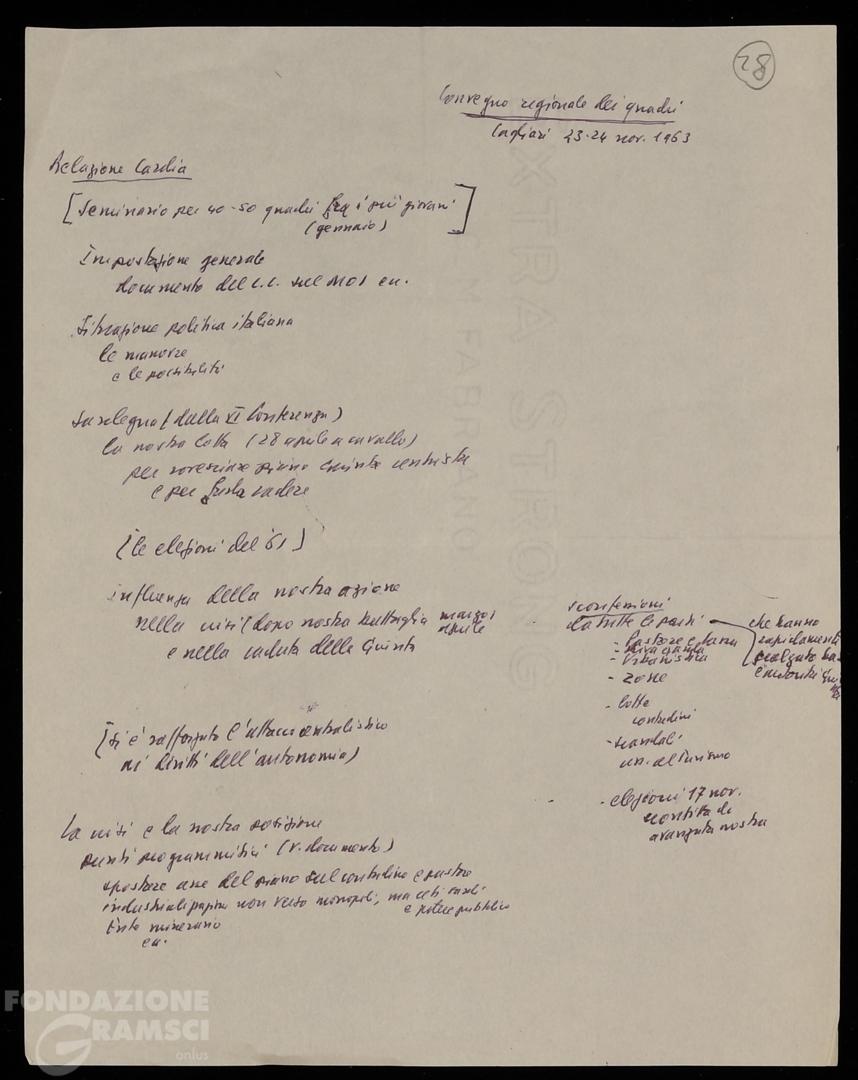 28
Convegno regionale dei quadri
Cagliari 23-24 nov. 1963
Relazione Cardia
[Seminario per 40-50 quadri fra i più giovani
(gennaio)]
Impostazione generale
documento del C.C. sul MOI ecc.
Situazione politica italiana
le manovre
e le possibilità
Sardegna (dalla VI Conferenza)
la nostra lotta (28 aprile a cavallo)
per rovesciare piano Giunta centrista
e per farla cadere
[le elezioni del '61]
influenza della nostra azione
nella crisi (dopo nostra battaglia marzo
aprile
e nella caduta della Giunta
[Si è rafforzato l'attacco centralistico
ai diritti dell'autonomia)
La crisi e la nostra posizione
punti programmatici (v. documento)
spostare asse del piano sul contadino e pastore
industrializzazione non verso monopoli, ma ceti sardi
e potere pubblico
Ente minerario
ecc.
sconfessioni
da tutte le parti
che hanno
rapidamente
- Pastore e
- Urbanistica
- zone
- lotte
contadini
- scandali
ass. al Turismo
- elezioni 17 nov.
sconfitta dc
avanzata nostra
EXTRA STRONG
FABRIANO
FONDAZIONE
GRAMSCI
onlus